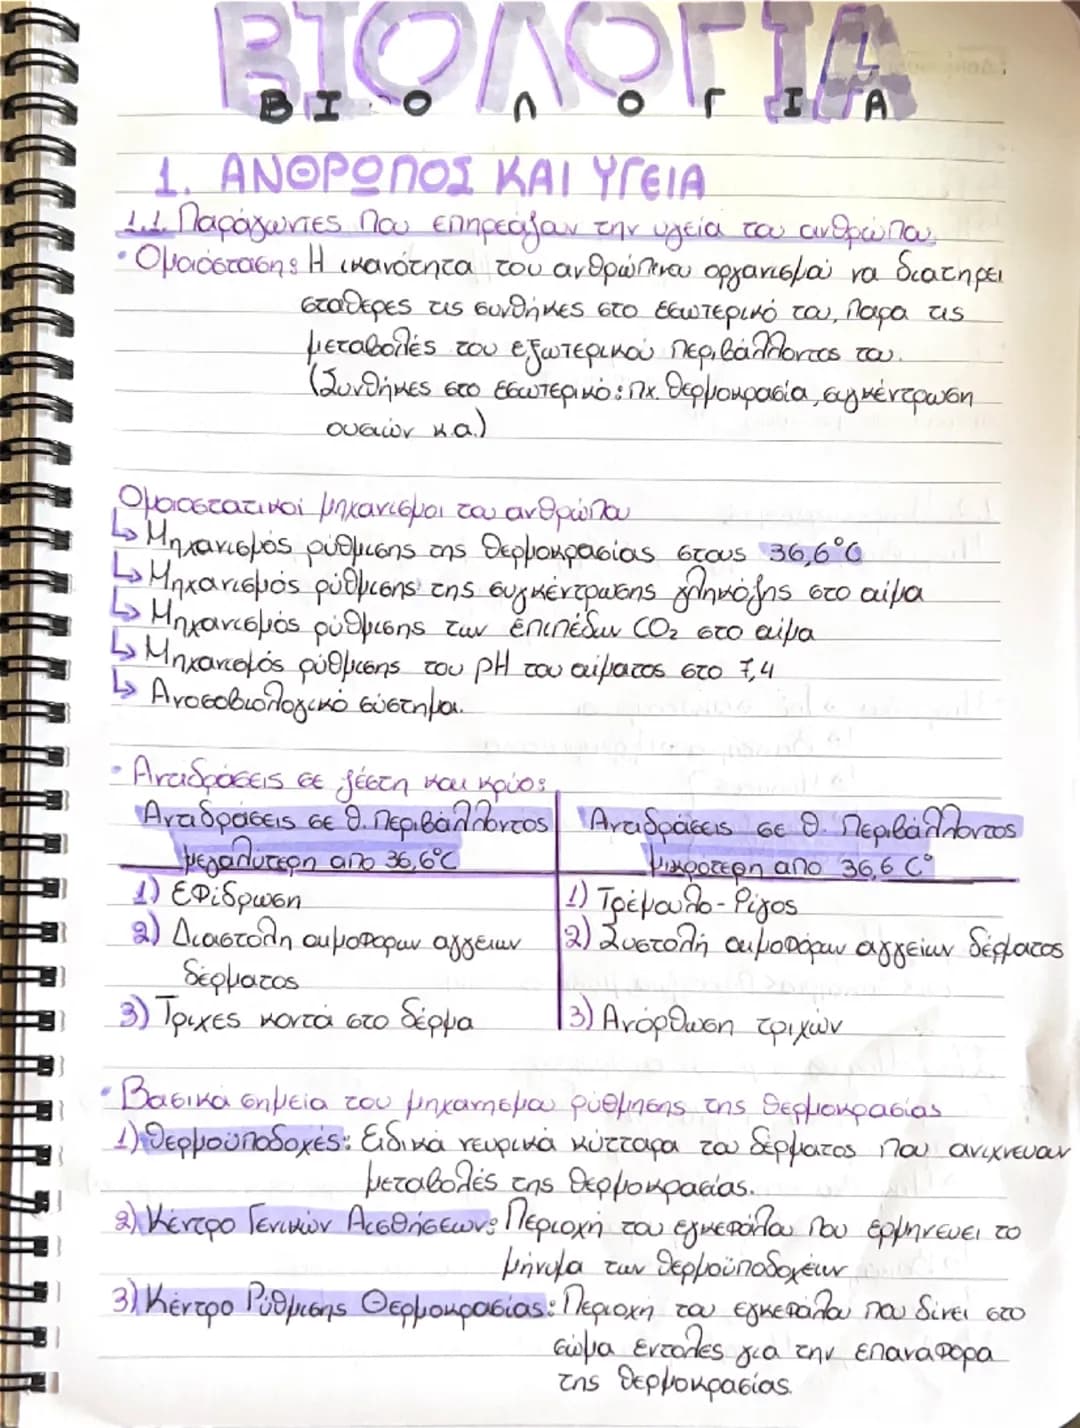 ΒΙΟΛΟΓΙΑ
Β Ι Ο Λ Ο Γ Ι Α
1. ΑΝΘΡΩΠΟΣ ΚΑΙ ΥΓΕΙΑ
1.1. Παράγωντες που επηρεάζουν την υγεία του ανθρώπου.
• Ομοιόσταση: Η ικανότητα του ανθρώπινου οργανισμού να διατηρεί
σταθερες τις συνθήκες στο εσωτερικό του, παρα τις
μεταβολές του εξωτερικού περιβάλλοντος του.
(Συνθήκες στο εσωτερικό: πχ. θερμοκρασία, συγκέντρωση
ουσιών κ.α.)
Ομοιοστατικοί μηχανισμοι του ανθρώπου
↳ Μηχανισμός ρύθμισης της θερμοκρασίας στους 36,6°C
↳ Μηχανισμός ρύθμισης της συγκέντρωσης γληκόζης στο αίμα
↳ Μηχανισμός ρύθμισης των επιπέδων CO₂ στο αίμα
↳ Μηχανισμός ρύθμισης του pH του αίματος στο 7,4
↳ Ανοσοβιολογικό σύστημα.
• Αντιδράσεις σε ζέστη και κρύο:
Αντιδράσεις σε θ. περιβάλλοντος Αντιδράσεις σε θ. περιβάλλοντος
μεγαλύτερη απο 36,6°C μικρότερη απο 36,6 C°
1) Εφίδρωση 1) Τρέμουλο - Ρίγος
2) Διαστολη αιμοφορων αγγειων 2) Συστολή αιμοφόρων αγγείων δέρματος
δέρματος
3) Τριχες κοντά στο δέρμα 3) Ανόρθωση τριχών
• Βασικά σημεία του μηχανησμου ρύθμησης της θερμοκρασίας
1) Θερμοϋποδοχές: Ειδικά νευρικά κύτταρα του δέρματος που ανιχνευουν
μεταβολές της θερμοκρασίας.
2) Κέντρο Γενικών Αισθήσεων: Περιοχή του εγκεφάλου που ερμηνευει το
μήνυμα των θερμοϋποδοχέων
3) Κέντρο Ρύθμισης Θερμοκρασίας: Περιοχη του εγκεφάλου που δίνει στο
σώμα εντολες για την επαναφορα
της θερμοκρασίας.